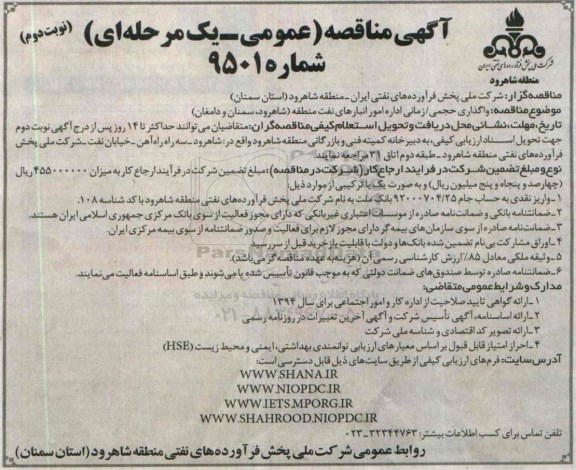 آگهی مناقصه (عمومی-یک مرحله‌ای) (نوبت دوم)
شماره ۹۵۰۱
شرکت ملی پخش فرآورده‌های نفتی ایران
منطقه شاهرود
مناقصه‌گزار: شرکت ملی پخش فرآورده‌های نفتی ایران-منطقه شاهرود (استان سمنان)
موضوع مناقصه: واگذاری حجمی/زمانی اداره امور انبارهای نفت منطقه (شاهرود، سمنان و دامغان)
تاریخ، مهلت، نشانی محل دریافت و تحویل استعلام کیفی مناقصه‌گران: متقاضیان می‌توانند حداکثر تا ۱۴ روز پس از درج آگهی نوبت دوم
جهت تحویل اسناد ارزیابی کیفی، به دبیرخانه کمیته فنی و بازرگانی منطقه شاهرود واقع در: شاهرود-سه راه راه آهن-خیابان نفت-شرکت ملی پخش
فرآورده‌های نفتی منطقه شاهرود-طبقه دوم اتاق ۳۱ مراجعه نمایند.
نوع و مبلغ تضمین شرکت در فرایند ارجاع کار (شرکت در مناقصه): مبلغ تضمین شرکت در فرآیند ارجاع کار به میزان ۴۵۵۰۰۰۰۰۰ ریال
(چهارصد و پنجاه و پنج میلیون ریال) و به صورت یک یا ترکیبی از موارد ذیل:
۱-واریز نقدی به حساب جام ۹۲۰۰۰۷۰۴/۲۵ بانک ملت به نام شرکت ملی پخش فرآورده‌های نفتی منطقه شاهرود با کد شناسه ۱۰۸.
۲-ضمانتنامه بانکی و ضمانت‌نامه صادره از موسسات اعتباری غیربانکی که دارای مجوز فعالیت از سوی بانک مرکزی جمهوری اسلامی ایران هستند.
۳-ضمانت‌نامه صادره از سوی سازمان‌های بیمه گر دارای مجوز لازم برای فعالیت و صدور ضمانتنامه از سوی بیمه مرکزی ایران.
۴-اوراق مشارکت بی‌نام تضمین شده بانک‌ها و دولت با قابلیت بازخرید قبل از سررسید.
۵-وثیقه ملکی معادل ۸۵٪ ارزش کارشناسی رسمی آن (هزینه به عهده مناقصه گر می‌باشد).
۶-ضمانت‌نامه صادره توسط صندوق‌های ضمانت دولتی که به موجب قانون تأسیس شده یا می‌شوند و طبق اساسنامه فعالیت می‌نمایند.
مدارک و شرایط عمومی متقاضی:
۱-ارائه گواهی تایید صلاحیت از اداره کار و امور اجتماعی برای سال ۱۳۹۴
۲-ارائه اساسنامه، آگهی تأسیس شرکت و آگهی آخرین تغییرات در روزنامه رسمی
۳-ارائه تصویر کد اقتصادی و شناسه ملی شرکت
۴-احراز امتیاز قابل قبول بر اساس معیارهای ارزیابی توانمندی بهداشتی، ایمنی و محیط زیست (HSE)
آدرس سایت: فرم‌های ارزیابی کیفی از طریق سایت‌های ذیل قابل دسترسی است:
WWW.SHANA.IR
WWW.NIOPDC.IR
WWW.IETS.MPORG.IR
WWW.SHAHROOD.NIOPDC.IR
تلفن تماس برای کسب اطلاعات بیشتر: ۳۲۳۴۴۷۶۳-۰۲۳
روابط عمومی شرکت ملی پخش فرآورده‌های نفتی منطقه شاهرود (استان سمنان)